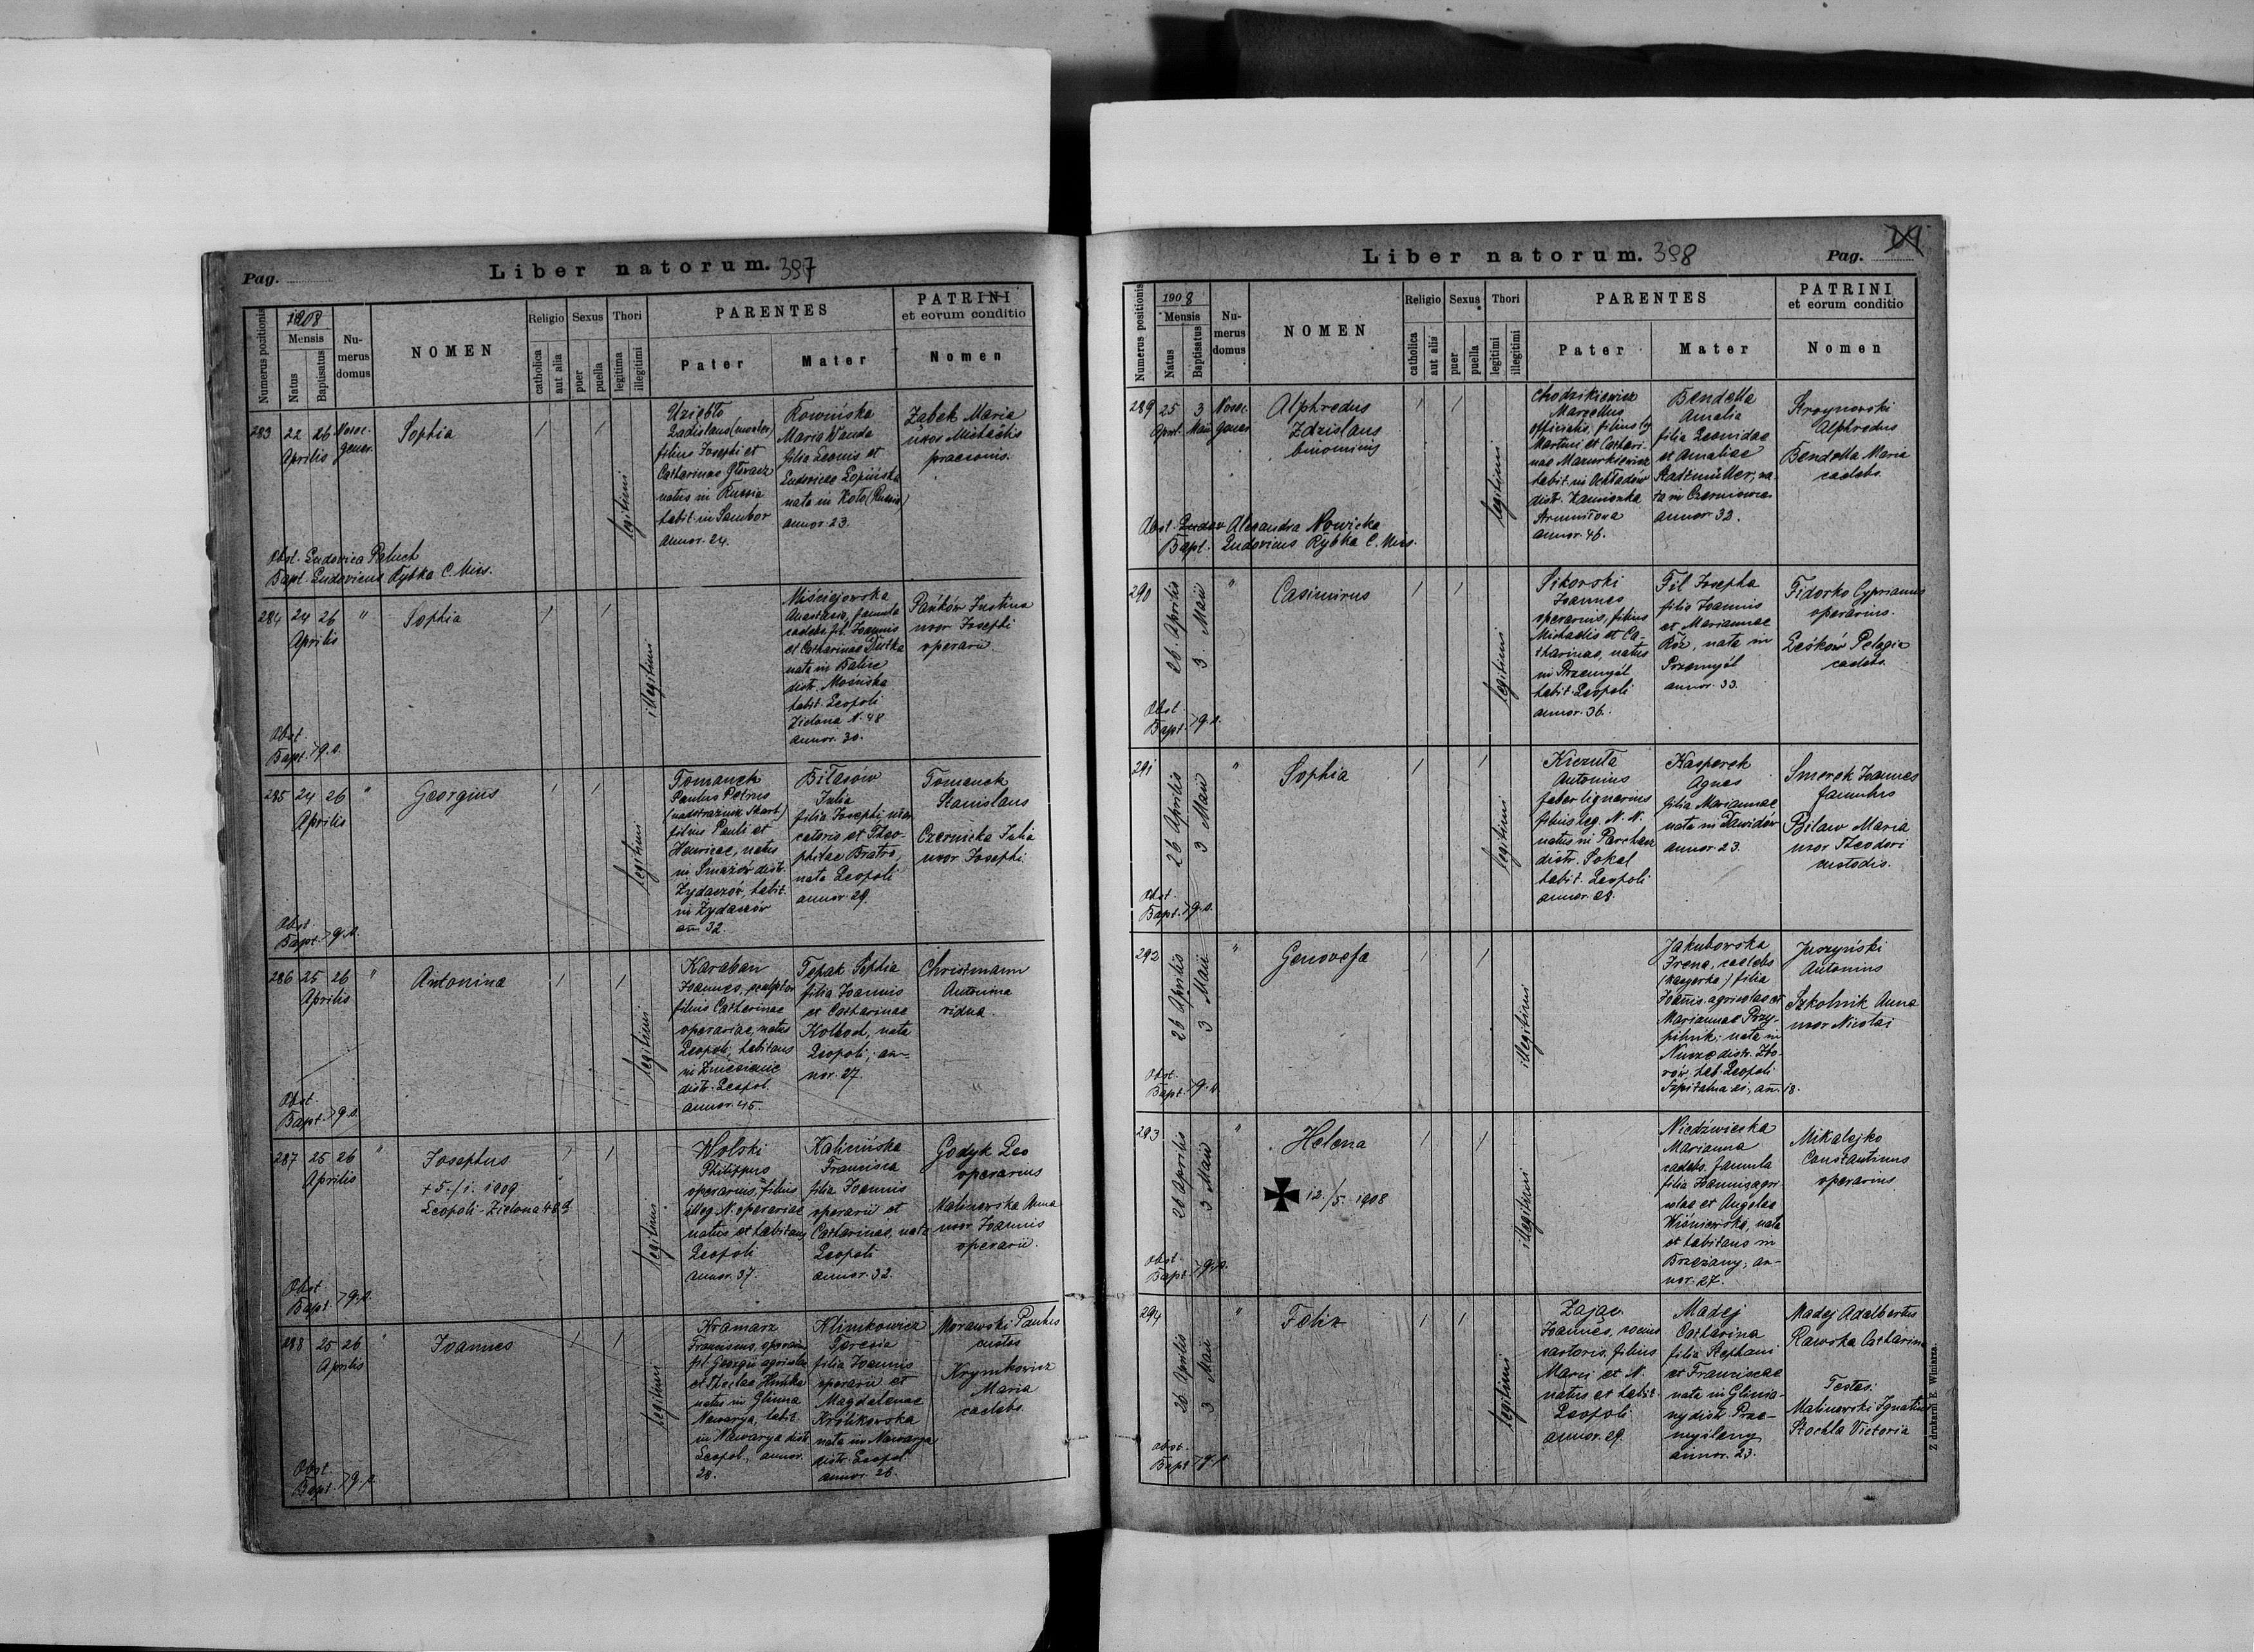 Pag.
Liber natorum. 397
Numerus positionis
1908
Mensis
Natus
Baptisatus
Numerus domus
NOMEN
Religio
catholica
aut alia
Sexus
puer
puella
Thori
legitima
illegitimi
PARENTES
Pater
Mater
PATRINI
et eorum conditio
Nomen
283
22 26
Aprilis
Nosoc.
gener.
Sophia
legitimi
Ladislaus
filius Josephi et
Catharinae
natus in Russia
habit. in Sambor
annor. 24.
Maria Wanda
filia Leonis et
Ludovicae Lopińska
nata in Koło (Russia)
annor. 23.
Żabek Maria
uxor Michaëlis
praeconis.
Obst. Ludovica Paluch
Bapt. Ludovicus Rybka C. Miss.
284
24 26
Aprilis
"
Sophia
illegitimi
Miściejewska
Anastasia, famula
caelebs, fil. Joannis
et Catharinae Dutka
nata in Balice
distr. Mościska
habit. Leopoli
Zielona N. 48
annor. 30.
Pańków Justina
uxor Josephi
operarii
Obst.
Bapt. > q. s.
285
24 26
Aprilis
"
Georgius
legitimi
Tomanek
Paulus Petrus
filius Pauli et
Henricae, natus
in distr.
Żydaczów, habit.
in Żydaczów
an. 32.
Biłasów
Julia
filia Josephi
et Theo-
philae Bratro,
nata Leopoli
annor 29.
Tomanek
Stanislaus
Czernicka Julia
uxor Josephi
Obst.
Bapt. > q. s.
286
25 26
Aprilis
"
Antonina
legitimi
Karaban
Joannes, sculptor
filius Catharinae
operariae, natus
Leopoli, habitans
in Zniesienie
distr. Leopol.
annor. 45.
Tepak Sophia
filia Joannis
et Catharinae
nata
Leopoli, an-
nor. 27.
Christmann
Antonina
vidua.
Obst.
Bapt. > q. s.
287
25 26
Aprilis
"
Josephus
+ 5./1. 1909
Leopoli - Zielona
legitimi
Wolski
Philippus
operarius, filius
illeg. N. operariae
natus et habitans
Leopoli
annor. 37.
Kalinińska
Francisca
filia Joannis
operarii et
Catharinae, nata
Leopoli
annor. 32.
Godyk Leo
operarius
Malinowska Anna
uxor Joannis
operarii.
Obst.
Bapt. > q. s.
288
25 26
Aprilis
"
Joannes
legitimi
Kramarz
Franciscus,
fil. Georgii agricolae
et Theclae
natus in Glinna
Nawarya, habit.
in Nawarya distr.
Leopol., annor.
28.
Klimkowicz
Teresia
filia Joannis
operarii et
Magdalenae
Królikowska
nata in Nawarya
distr. Leopol.
annor. 26.
Morawski Paulus
custos
Krymkowicz
Maria
caelebs.
Obst.
Bapt. > q. s.
Liber natorum. 398
Pag.
Numerus positionis
1908
Mensis
Natus
Baptisatus
Numerus domus
NOMEN
Religio
catholica
aut alia
Sexus
puer
puella
Thori
legitimi
illegitimi
PARENTES
Pater
Mater
PATRINI
et eorum conditio
Nomen
289
25 3
April. Maii
Nosoc.
gener.
Alphredus
Zdzislaus
binominis
legitimi
Chodzikiewicz
Marcellus
officialis, filius
Martini et Cathari-
nae Mazurkiewicz
habit. in
distr. Kamionka
Strumiłowa
annor. 45.
Bendella
Amalia
filia Leonidae
et Amaliae
Stadtmüller, na-
ta in Czerniowce
annor 32.
Stroynowski
Alphredus
Bendella Maria
caelebs.
Obst. Alexandra Nowicka
Bapt. Ludovicus Rybka C. Miss.
290
26 Aprilis
3 Maii
"
Casimirus
legitimi
Sikorski
Joannes
operarius, filius
Michaelis et Ca-
tharinae, natus
in Przemyśl
habit. Leopoli
annor. 36.
Fil Josepha
filia Joannis
et Mariannae
nata in
Przemyśl
annor. 33.
Fidorko Cyprianus
operarius.
Leśków Pelagia
caelebs.
Obst.
Bapt. > q. s.
291
26 Aprilis
3 Maii
"
Sophia
legitimi
Kiczuła
Antonius
faber lignarius
filius leg. N. N.
natus in Parchacz
distr. Sokal
habit. Leopoli
annor. 28.
Kasperek
Agnes
filia Mariannae
nata in Dawidów
annor. 23.
Smerek Joannes
famulus
Bilaw Maria
uxor Theodori
custodis.
Obst.
Bapt. > q. s.
292
26 Aprilis
3 Maii
"
Genovefa
illegitimi
Jakubowska
Irena, caelebs
filia
Joannis agricolae et
Mariannae Przy-
pitnik; nata in
Nuszcze distr. Zbo-
rów; hab. Leopoli
Szpitalna 21, an. 18.
Juszyński
Antonius
Szkolnik Anna
uxor Nicolai
Obst.
Bapt. > q. s.
293
26 Aprilis
3 Maii
"
Helena
12./5. 1908
illegitimi
Niedźwiecka
Marianna
caelebs. famula
filia Joannis agri-
colae et Angelae
Wiśniewska, nata
et habitans in
Brzeżany, an-
nor. 27.
Mikalejko
Constantinus
operarius
Obst.
Bapt. > q. s.
294
26 Aprilis
3 Maii
"
Felix
legitimi
Zając
Joannes, socius
sartoris, filius
Mariae et N.
natus et habit.
Leopoli
annor. 29.
Madej
Catharina
filia Stephani
et Franciscae
nata in Glinia-
ny distr. Prze-
myślany
annor. 23.
Madej Adalbertus
Rawska Catharina
Testes:
Malinowski Ignatius
Stochla Victoria
Obst.
Bapt. > q. s.
Z drukarni E. Winiarza.